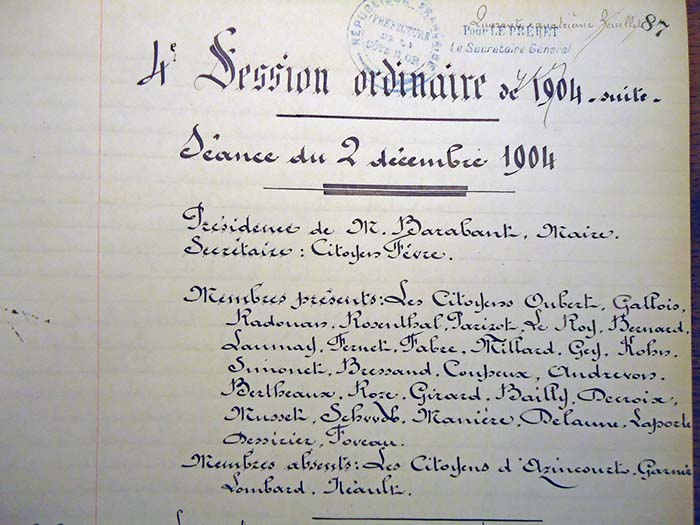 Quarante quatrième feuillet 87
RÉPUBLIQUE FRANÇAISE
PRÉFECTURE DE LA CÔTE D'OR
Pour LE PRÉFET
Le Secrétaire Général
4e Session ordinaire de 1904 - suite -
Séance du 2 décembre 1904
Présidence de M. Barabant, Maire.
Secrétaire : Citoyen Fèvre.
Membres présents : Les Citoyens Oubert, Gallois,
Radouan, Rosenthal, Parizot, Le Roy, Bernard,
Launay, Fernet, Fabre, Millard, Gey, Kohn,
Simonet, Bressand, Coupeux, Andrevon,
Bertheaux, Roze, Girard, Bailly, Decroix,
Musset, Manière, Delaune, Laporte
Dessirier, Foveau.
Membres absents : Les Citoyens d'Azincourt, Garnier
Lombard, Néault.